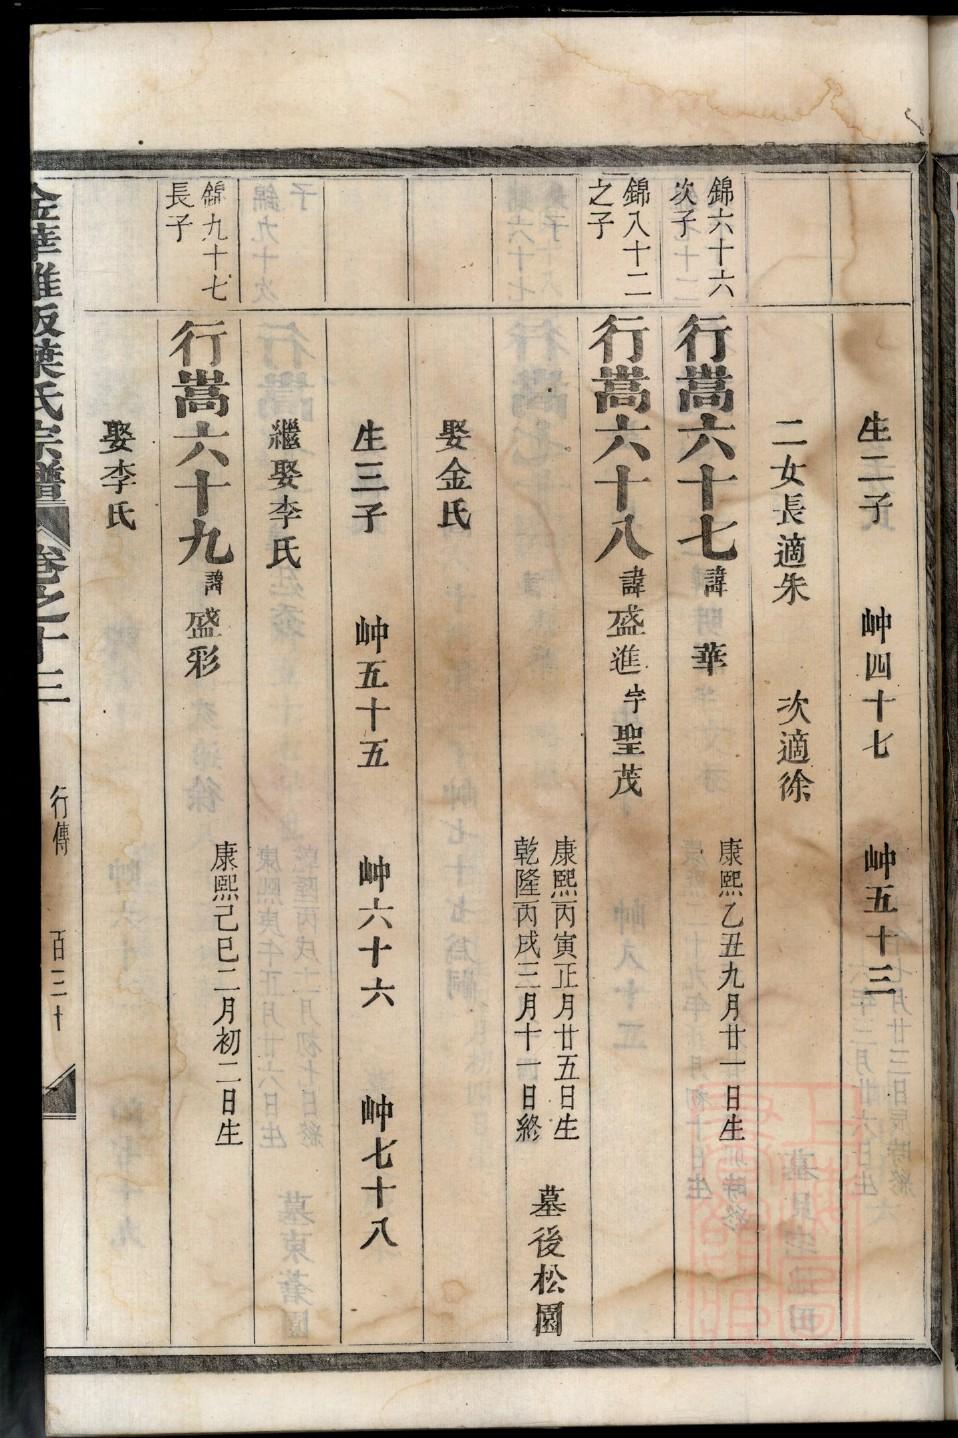 生二子 岫四十七 岫五十三
二女長適朱 次適徐
錦六十六
次子
行嵩六十七 諱 華
康熙乙丑九月廿一日生
錦八十二
之子
行嵩六十八 諱盛進 字聖茂
康熙丙寅正月廿五日生
乾隆丙戌三月十一日終
墓後松園
娶金氏
生三子 岫五十五 岫六十六 岫七十八
繼娶李氏
錦九十七
長子
行嵩六十九 諱盛彩
康熙己巳二月初二日生
娶李氏
葉氏宗譜 卷之十三 行傳 百三十